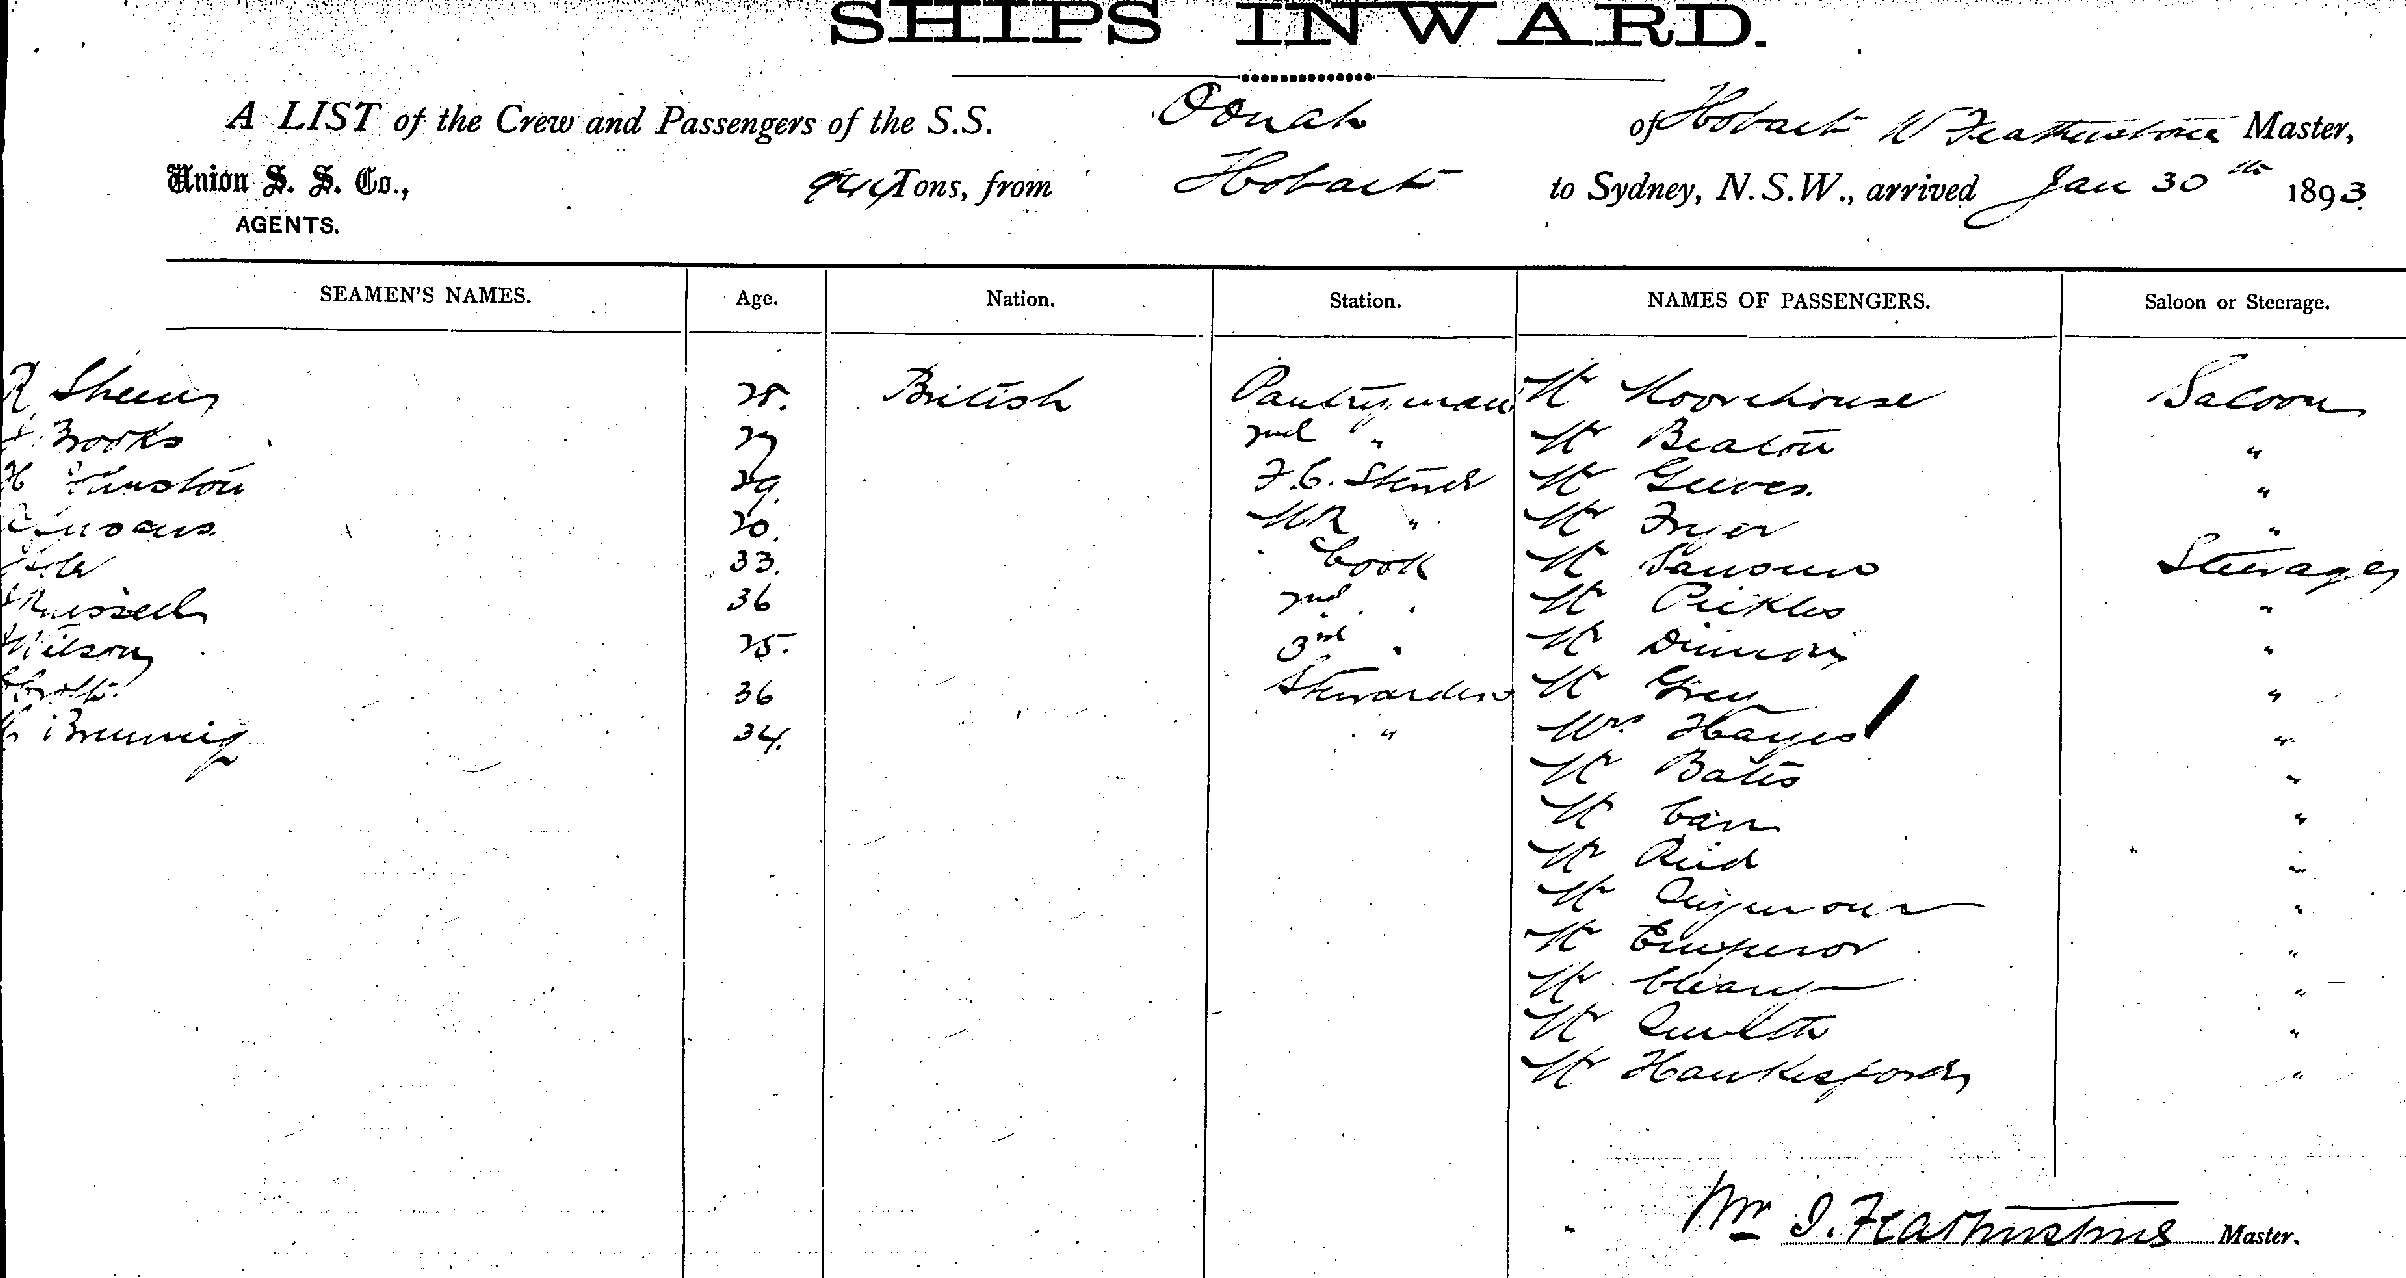 SHIPS INWARD.
A LIST of the Crew and Passengers of the S.S. Oonah of Hobart W Featherstone Master,
Union S. S. Co., Tons, from Hobart to Sydney, N.S.W., arrived Jan 30th 1893
AGENTS.
SEAMEN'S NAMES. Age. Nation. Station. NAMES OF PASSENGERS. Saloon or Steerage.
R 28. British Pantryman Mr Moorehouse Saloon
Brooks 27 2nd " Mr Beaton "
H 29. F.C. Mr Geeves. "
20. " Mr Fryer "
33. Cook Mr Steerage
Russell 36 2nd " Mr Pickles "
Wilson 25. 3rd " Mr "
36 Stewardess Mr Grey "
34. " Mrs Hayes "
Mr Bates "
Mr Carr "
Mr Reid "
Mr Seymour "
Mr Emperor "
Mr "
Mr "
Mr Hawkesford "
Wm J. Featherstone Master.